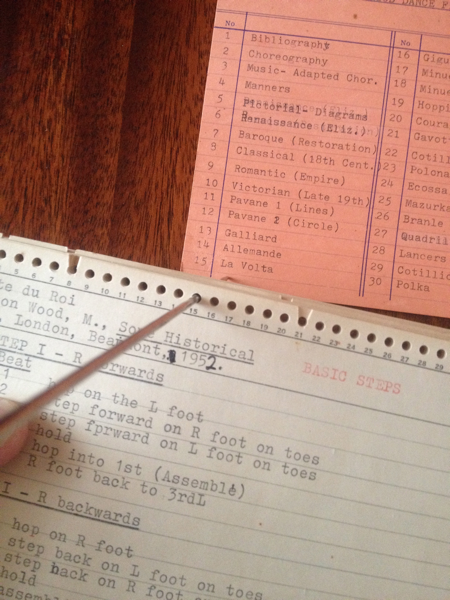 DANCE F
No
1 Bibliography
2 Choreography
3 Music- Adapted Chor.
4 Manners
5 Pictorial- Diagrams
6 Renaissance (Eliz.)
7 Baroque (Restoration)
8 Classical (18th Cent.)
9 Romantic (Empire)
10 Victorian (Late 19th)
11 Pavane 1 (Lines)
12 Pavane 2 (Circle)
13 Galliard
14 Allemande
15 La Volta
No
16 Gigu
17 Minue
18 Minue
19 Hoppi
20 Coura
21 Gavot
22 Cotill
23 Polona
24 Ecossa
25 Mazurk
26 Branle
27 Quadril
28 Lancers
29 Cotillio
30 Polka
5 6 7 8 9 10 11 12 13 14 15 16 17 18 19 20 21 22 23 24 25 26 27 28 29
te du Roi
on Wood, M., Some Historical
, London, Beaumont, 1952.
BASIC STEPS
STEP I - R forwards
Beat
1 hop on the L foot
2 step forward on R foot on toes
step fprward on L foot on toes
hold
hop into 1st (Assemblé)
R foot back to 3rdL
I - R backwards
hop on R foot
step back on L foot on toes
step back on R foot on
hold